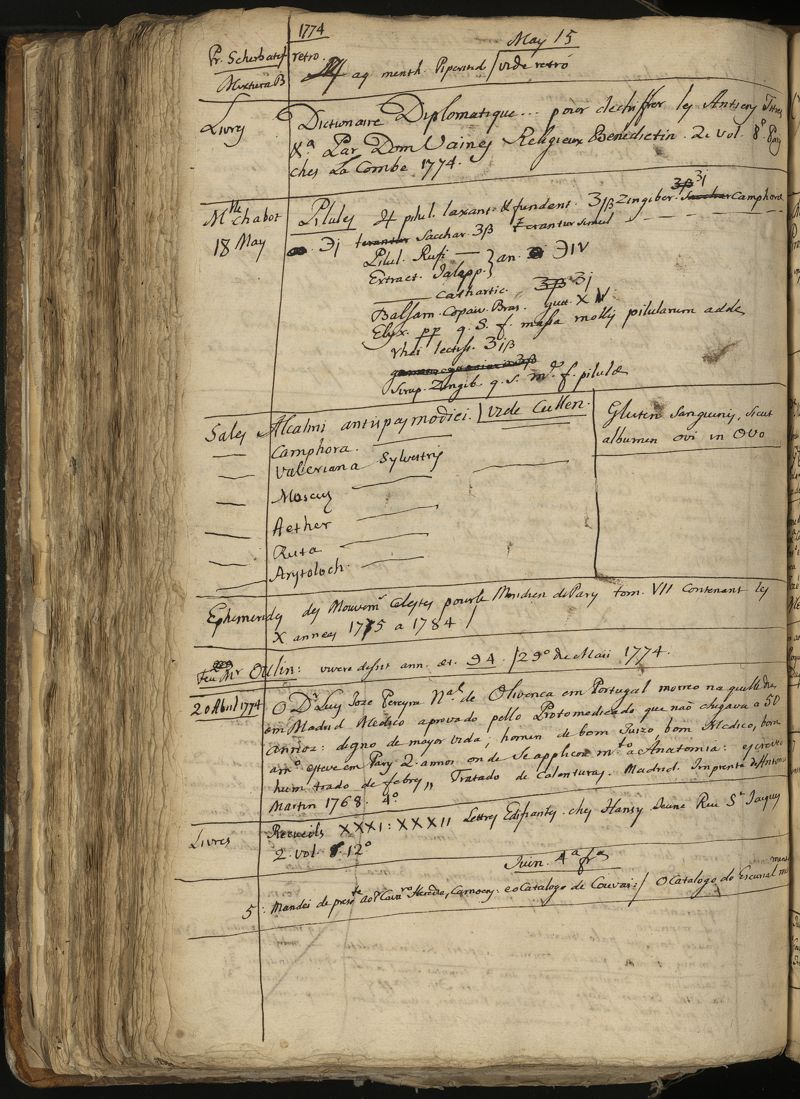 1774
May 15
Pr. Scherbatof retro. aq menth. Piperatid / vide retro
Mixtura B
Livres Dictionaire Diplomatique... pour dechiffrer les Antiens Titres
&a Par Dom Vaines Religieux Benedictin. 2. vol. 8º Pary
ches La Combe 1774.
Mlle Chabot Pilules ℞ pilul. laxant. & fundent. Ʒjß Zingiber. Ʒß Ʒj Sacchar Camphora
18 May ℈j terantur Sacchar. Ʒß terantur simul
Pilul. Rufi —
Extract. Jalapp. } an. ℈IV
—— cathartic. Ʒß Ʒj
Balsam. Copaiv. Bras. Gutt. X IV
Elyx. pp q. S. f. massa mollis pilularum adde
rhei lectiss. Ʒjß
Syrup. Zingib q. s. m. f. pilulæ
Sales Alcalini antispasmodici. / vide Cullen.
Gluten sanguinis, sicut
albumen ovi in ovo
— Camphora.
— Valeriana Sylvestris
— Moscus
— Aether
— Ruta
— Arystoloch.
Ephemerides des Mouvem. Celestes pour le Meridien de Pary tom. VII contenant les
X annees 1775 a 1784
Feu Mr vivere desiit ann. æt. 94. / 29º de Maii 1774.
20 Abril 1774 O Dr Luis Joze Pereyra Nal de Olivenca em Portugal morreo naquelle dia
em Madrid Medico aprovado pello Protomedicado que naõ chegava a 50
annos: digno de mayor vida; homen de bom Juizo bom Medico, bom
amº esteve em Pary 2. annos onde se applicou mto a Anatomia: escreveo
hum tratado de febres „ Tratado de Calenturas. Madrid. Imprenta de Antonio
Martin 1768. 4º
Livres Recueils XXXI: XXXII Lettres Edifiantes. ches Hansy Jeune Rue St Jaques
2. vol. 12º
Juin. 4a fa
5: Mandei de presete ao Cavro Heredia, Camoens: e o Catalogo de Couvai:/ O Catalogo do Escurial